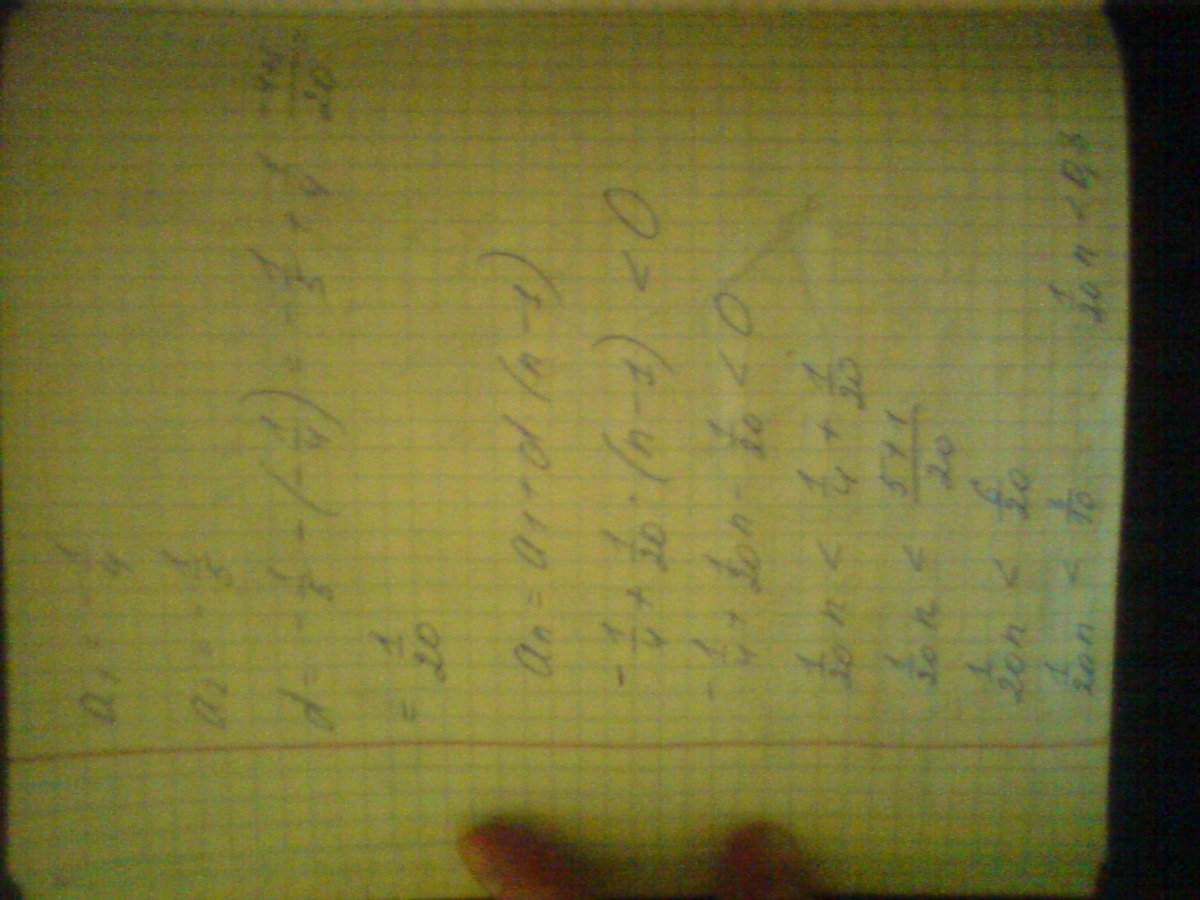 a₁ = -1/4
a₂ = -1/5
d = -1/5 - (-1/4) = -1/5 + 1/4 = -4+5/20
= 1/20
aₙ = a₁ + d (n-1)
-1/4 + 1/20 · (n-1) < 0
-1/4 + 1/20 n - 1/20 < 0
1/20 n < 1/4 + 1/20
1/20 n < 5+1/20
1/20 n < 6/20
1/20 n < 3/10 1/20 n < 0,3